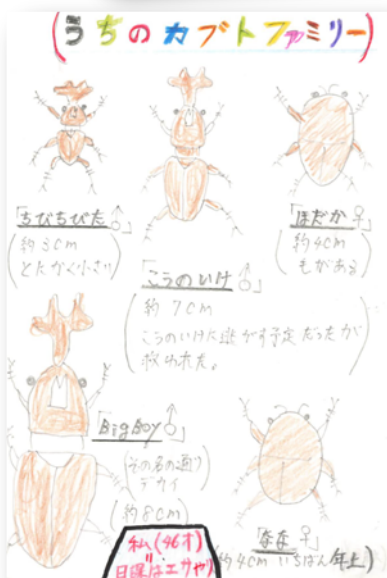 (うちのカブトファミリー)
「ちびちびた♂」
(約3cm
とにかく小さい)
「こうのいけ♂」
(約7cm
こうのいけに逃がす予定だったが
救われた。)
「ほだか♀」
(約4cm
もがある)
「BigBoy♂」
(その名の通り
デカイ)
(約8cm)
「なな♀」
(約4cm いちばん年上)
私(46才)
日課はエサやり